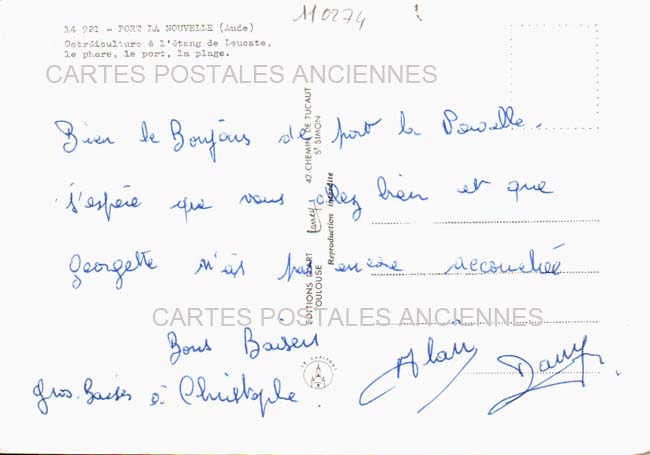 110274
14 921 - PORT LA NOUVELLE (Aude)
Ostréiculture à l'étang de Leucate,
le phare, le port, la plage.
CARTES POSTALES ANCIENNES
Bien le Bonjours de port la Nouvelle.
j'espère que vous allez bien et que
georgette n'as pas encore accouchée
Bons Baisers
gros Baises à Christophe.
Alain Dany
EDITIONS D'ART Larrey 42, CHEMIN DE TUCAUT
TOULOUSE ST SIMON
Reproduction interdite
CARTES POSTALES ANCIENNES
LE CAPITOUL